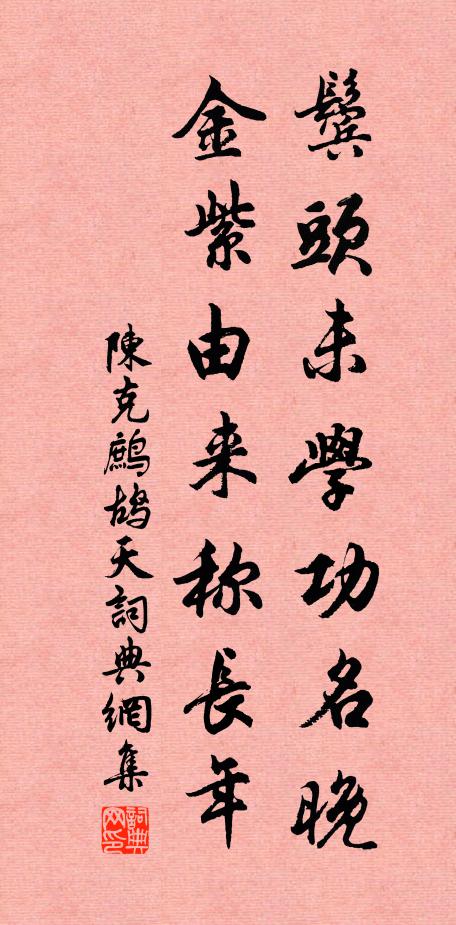 鬓頭未學功名晚
金紫由来称長年
陳克鷓鴣天詞典網集
詞典网印